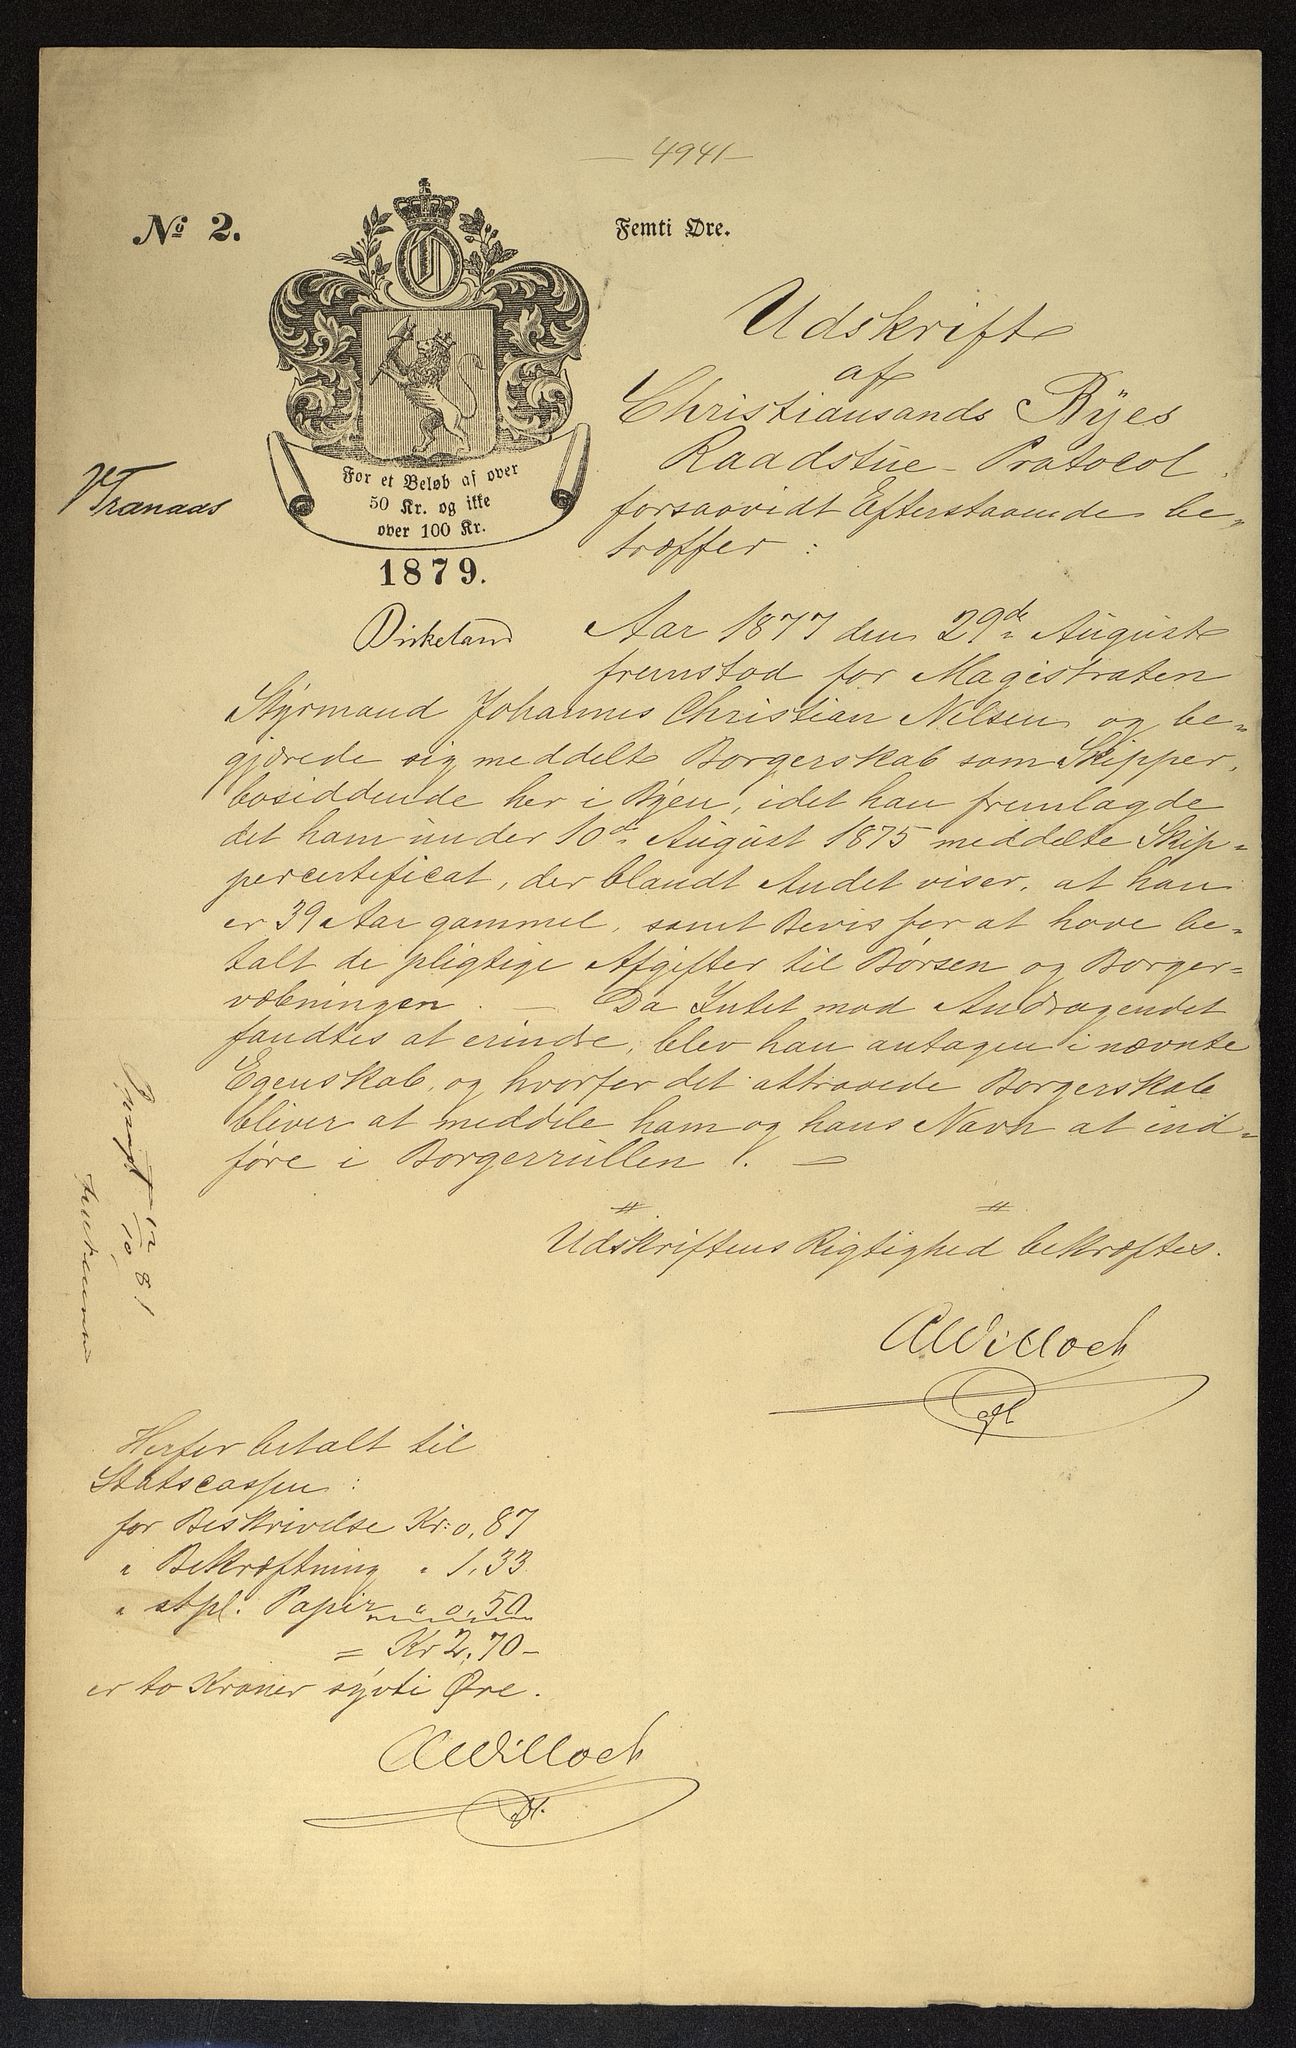 — 4941 —
No 2.
Femti Øre.
For et Beløb af over
50 Kr. og ikke
over 100 Kr.
1879.
VTranaas
Birkeland
Udskrift
af
Christiansands Byes
Raadstue-Protocol
forsaavidt Efterstaaende be-
træffer:
Aar 1877 den 29de August
fremstod for Magistraten
Styrmand Johannes Christian Nilsen og be-
gjærede sig meddelt Borgerskab som Skipper,
bosiddende her i Byen, idet han fremlagde
det ham under 10de August 1875 meddelte Skip-
percertificat, der blandt Andet viser, at han
er 39 Aar gammel, samt Bevis for at have be-
talt de pligtige Afgifter til Børsen og Borger-
væbningen. — Da Intet mod Andragendet
fandtes at erindre, blev han antagen i nævnte
Egenskab, og hvorfor det attraaede Borgerskab
bliver at meddele ham og hans Navn at ind-
føre i Borgerrullen. —
Udskriftens Rigtighed bekræftes.
AWilloch
Herfor betalt til
Statscassen:
for Beskrivelse Kr: 0,87
" Bekræftning " 1,33
" stpl. Papir " 0,50
= Kr 2,70 –
er to Kroner sytti Øre.
AWilloch
12/10 81